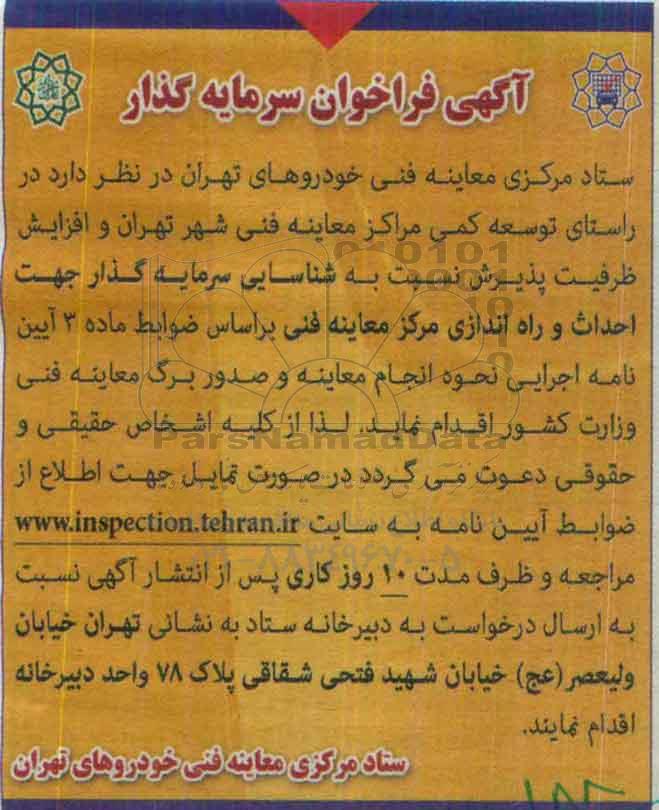 آگهی فراخوان سرمایه گذار
ستاد مرکزی معاینه فنی خودروهای تهران در نظر دارد در
راستای توسعه کمی مراکز معاینه فنی شهر تهران و افزایش
ظرفیت پذیرش نسبت به شناسایی سرمایه گذار جهت
احداث و راه اندازی مرکز معاینه فنی براساس ضوابط ماده ۳ آیین
نامه اجرایی نحوه انجام معاینه و صدور برگ معاینه فنی
وزارت کشور اقدام نماید. لذا از کلیه اشخاص حقیقی و
ParsNamadData
حقوقی دعوت می گردد در صورت تمایل جهت اطلاع از
ضوابط آیین نامه به سایت www.inspection.tehran.ir
۰۲۱-۸۸۳۴۹۶۷۰-۵
مراجعه و ظرف مدت ۱۰ روز کاری پس از انتشار آگهی نسبت
به ارسال درخواست به دبیرخانه ستاد به نشانی تهران خیابان
ولیعصر (عج) خیابان شهید فتحی شقاقی پلاک ۷۸ واحد دبیرخانه
اقدام نمایند.
ستاد مرکزی معاینه فنی خودروهای تهران